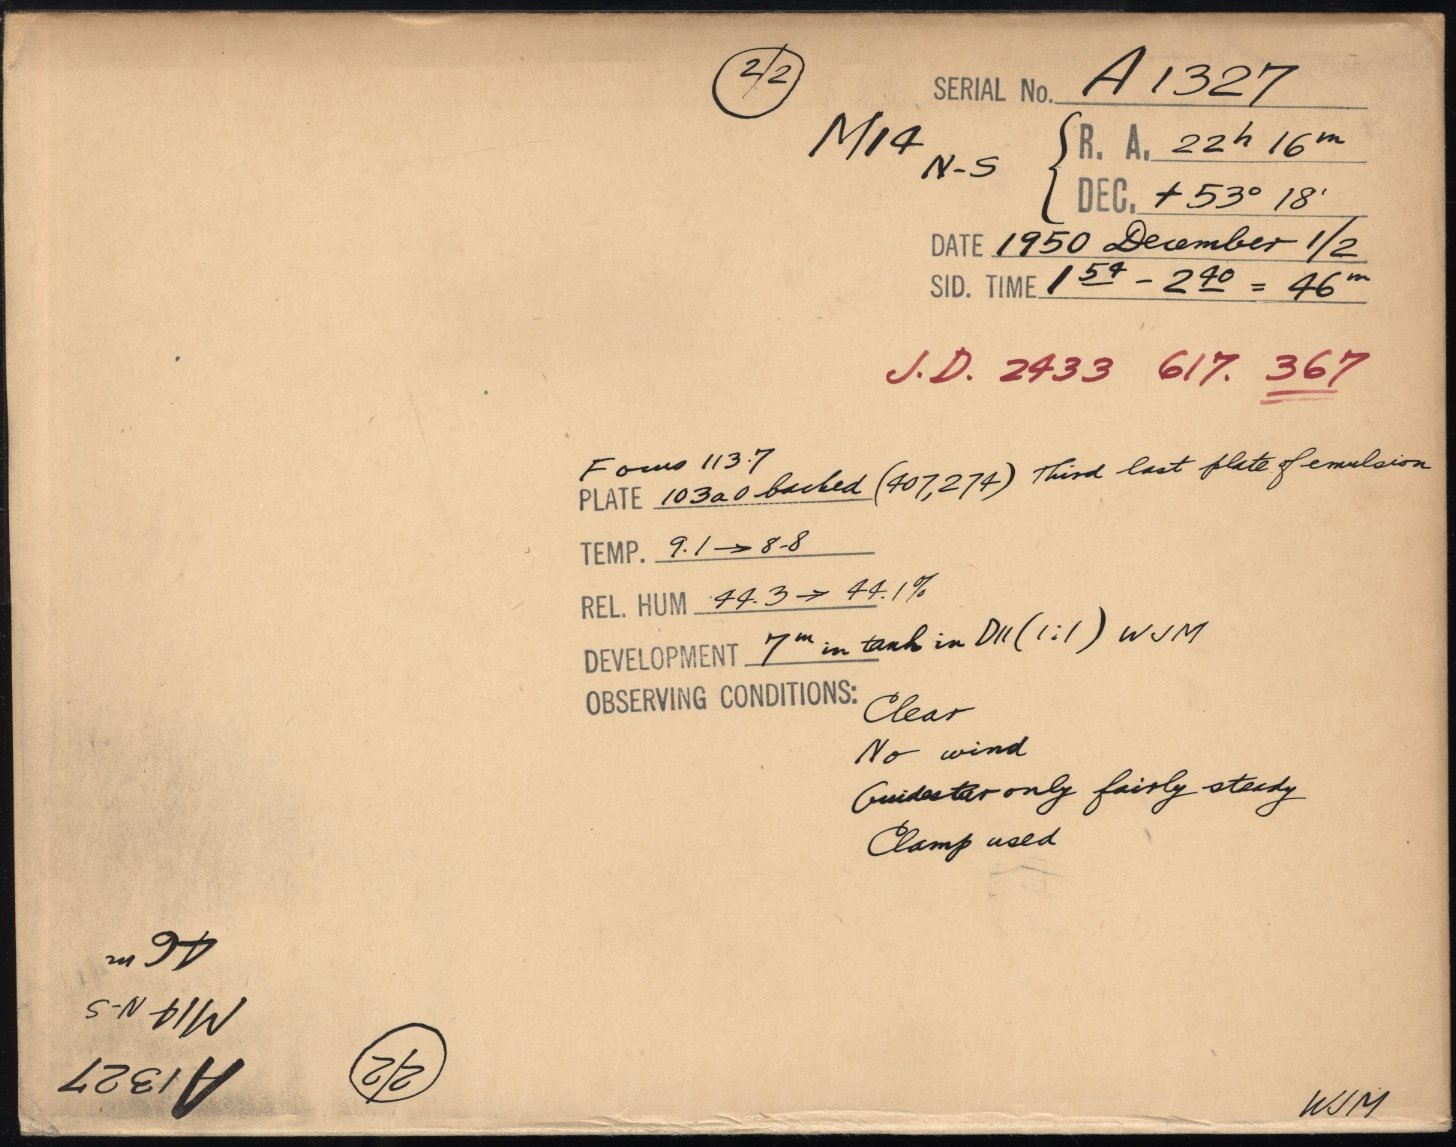 2/2
SERIAL No. A1327
M14 N-S
R. A. 22h 16m
DEC. +53° 18'
DATE 1950 December 1/2
SID. TIME 1 54 - 2 40 = 46m
J.D. 2433 617. 367
Focus 113.7
PLATE 103a0 backed (407,274) Third last plate of emulsion
TEMP. 9.1 → 8.8
REL. HUM 44.3 → 44.1%
DEVELOPMENT 7m in tank in D11 (1:1) WJM
OBSERVING CONDITIONS:
Clear
No wind
Guidestar only fairly steady
Clamp used
46m
M14 N-S
A1327
2/2
WJM